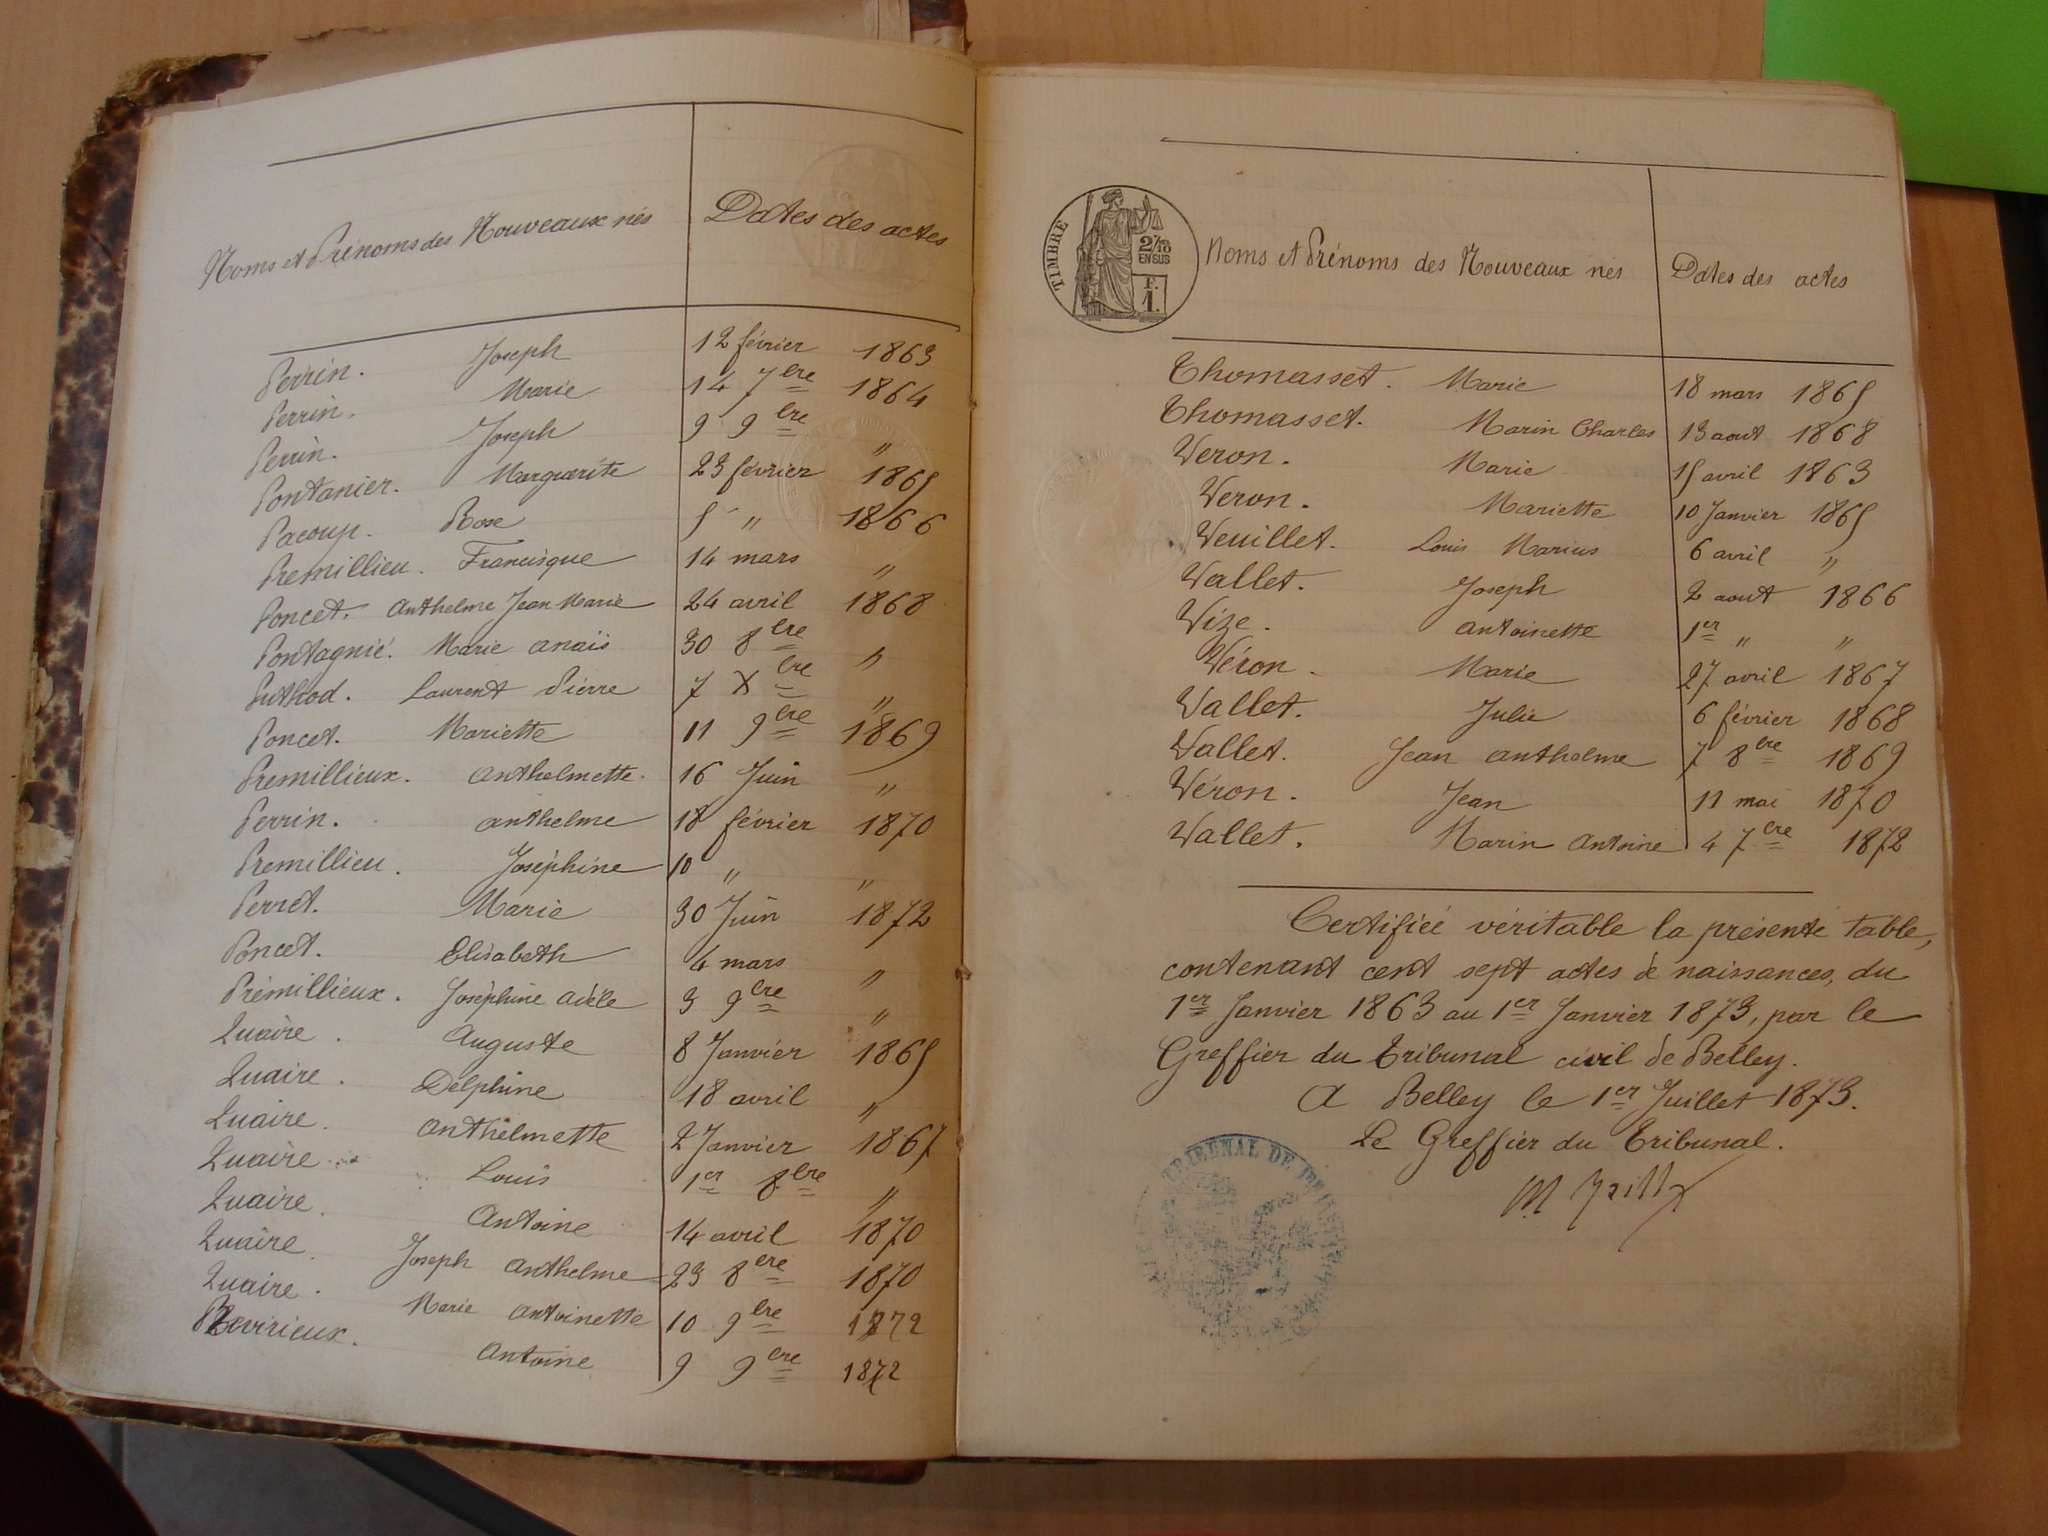 Noms et Prénoms des Nouveaux nés Dates des actes
Perrin. Joseph 12 février 1863
Perrin. Marie 14 7bre 1864
Perrin. Joseph 9 9bre "
Pontanier. Marguerite 23 février 1865
Pacoup. Rose 5 " 1866
Premillieu. Francisque 14 mars "
Poncet. Anthelme Jean Marie 24 avril 1868
Pontagnié. Marie Anaïs 30 8bre "
Puthod. Laurent Pierre 7 Xbre "
Poncet. Mariette 11 9bre 1869
Premillieux. Anthelmette. 16 Juin "
Perrin. Anthelme 18 février 1870
Premillieu. Joséphine 10 " "
Perret. Marie 30 Juin 1872
Poncet. Elisabeth 4 mars "
Prémillieux. Joséphine Adèle 3 9bre "
Quaire. Auguste 8 Janvier 1865
Quaire. Delphine 18 avril "
Quaire. Anthelmette 2 Janvier 1867
Quaire. Louis 1er 8bre "
Quaire. Antoine 14 avril 1870
Quaire. Joseph Anthelme 23 8bre 1870
Quaire. Marie Antoinette 10 9bre 1872
Revirieux. Antoine 9 9bre 1872
TIMBRE
2/10
EN SUS
F.
1.
Noms et Prénoms des Nouveaux nés Dates des actes
Thomasset. Marie 18 mars 1865
Thomasset. Marin Charles 13 aout 1868
Veron. Marie 15 avril 1863
Veron. Mariette 10 Janvier 1865
Veuillet. Louis Marius 6 avril "
Vallet. Joseph 2 aout 1866
Vize. Antoinette 1er " "
Véron. Marie 27 avril 1867
Vallet. Julie 6 février 1868
Vallet. Jean Anthelme 7 8bre 1869
Véron. Jean 11 mai 1870
Vallet. Marin Antoine 4 7bre 1872
Certifiée véritable la présente table,
contenant cent sept actes de naissances, du
1er Janvier 1863 au 1er Janvier 1873, par le
Greffier du Tribunal civil de Belley.
A Belley le 1er Juillet 1873.
Le Greffier du Tribunal.
TRIBUNAL DE